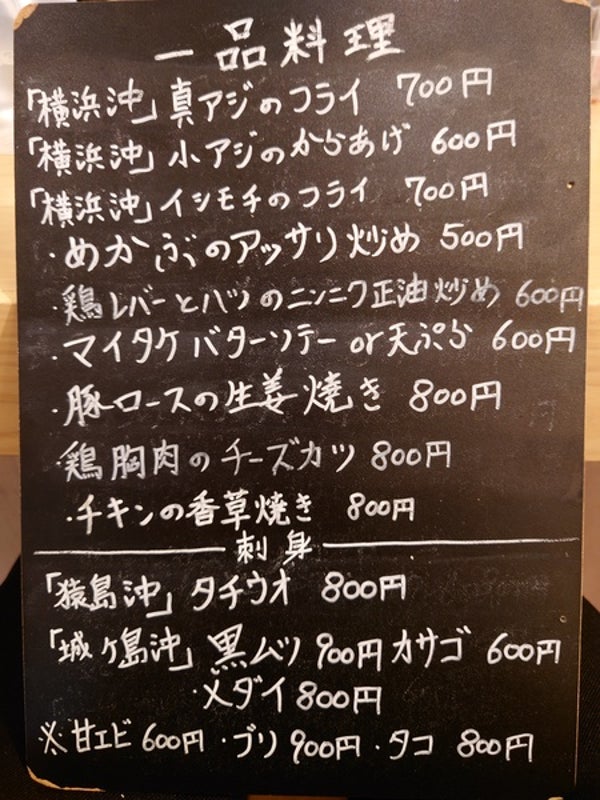 一品料理
「横浜沖」真アジのフライ 700円
「横浜沖」小アジのからあげ 600円
「横浜沖」イシモチのフライ 700円
・めかぶのアッサリ炒め 500円
・鶏レバーとハツのニンニク正油炒め 600円
・マイタケバターソテーor天ぷら 600円
・豚ロースの生姜焼き 800円
・鶏胸肉のチーズカツ 800円
・チキンの香草焼き 800円
刺身
「猿島沖」タチウオ 800円
「城ヶ島沖」黒ムツ 900円 カサゴ 600円
・メダイ 800円
※甘エビ 600円・ブリ 900円・タコ 800円